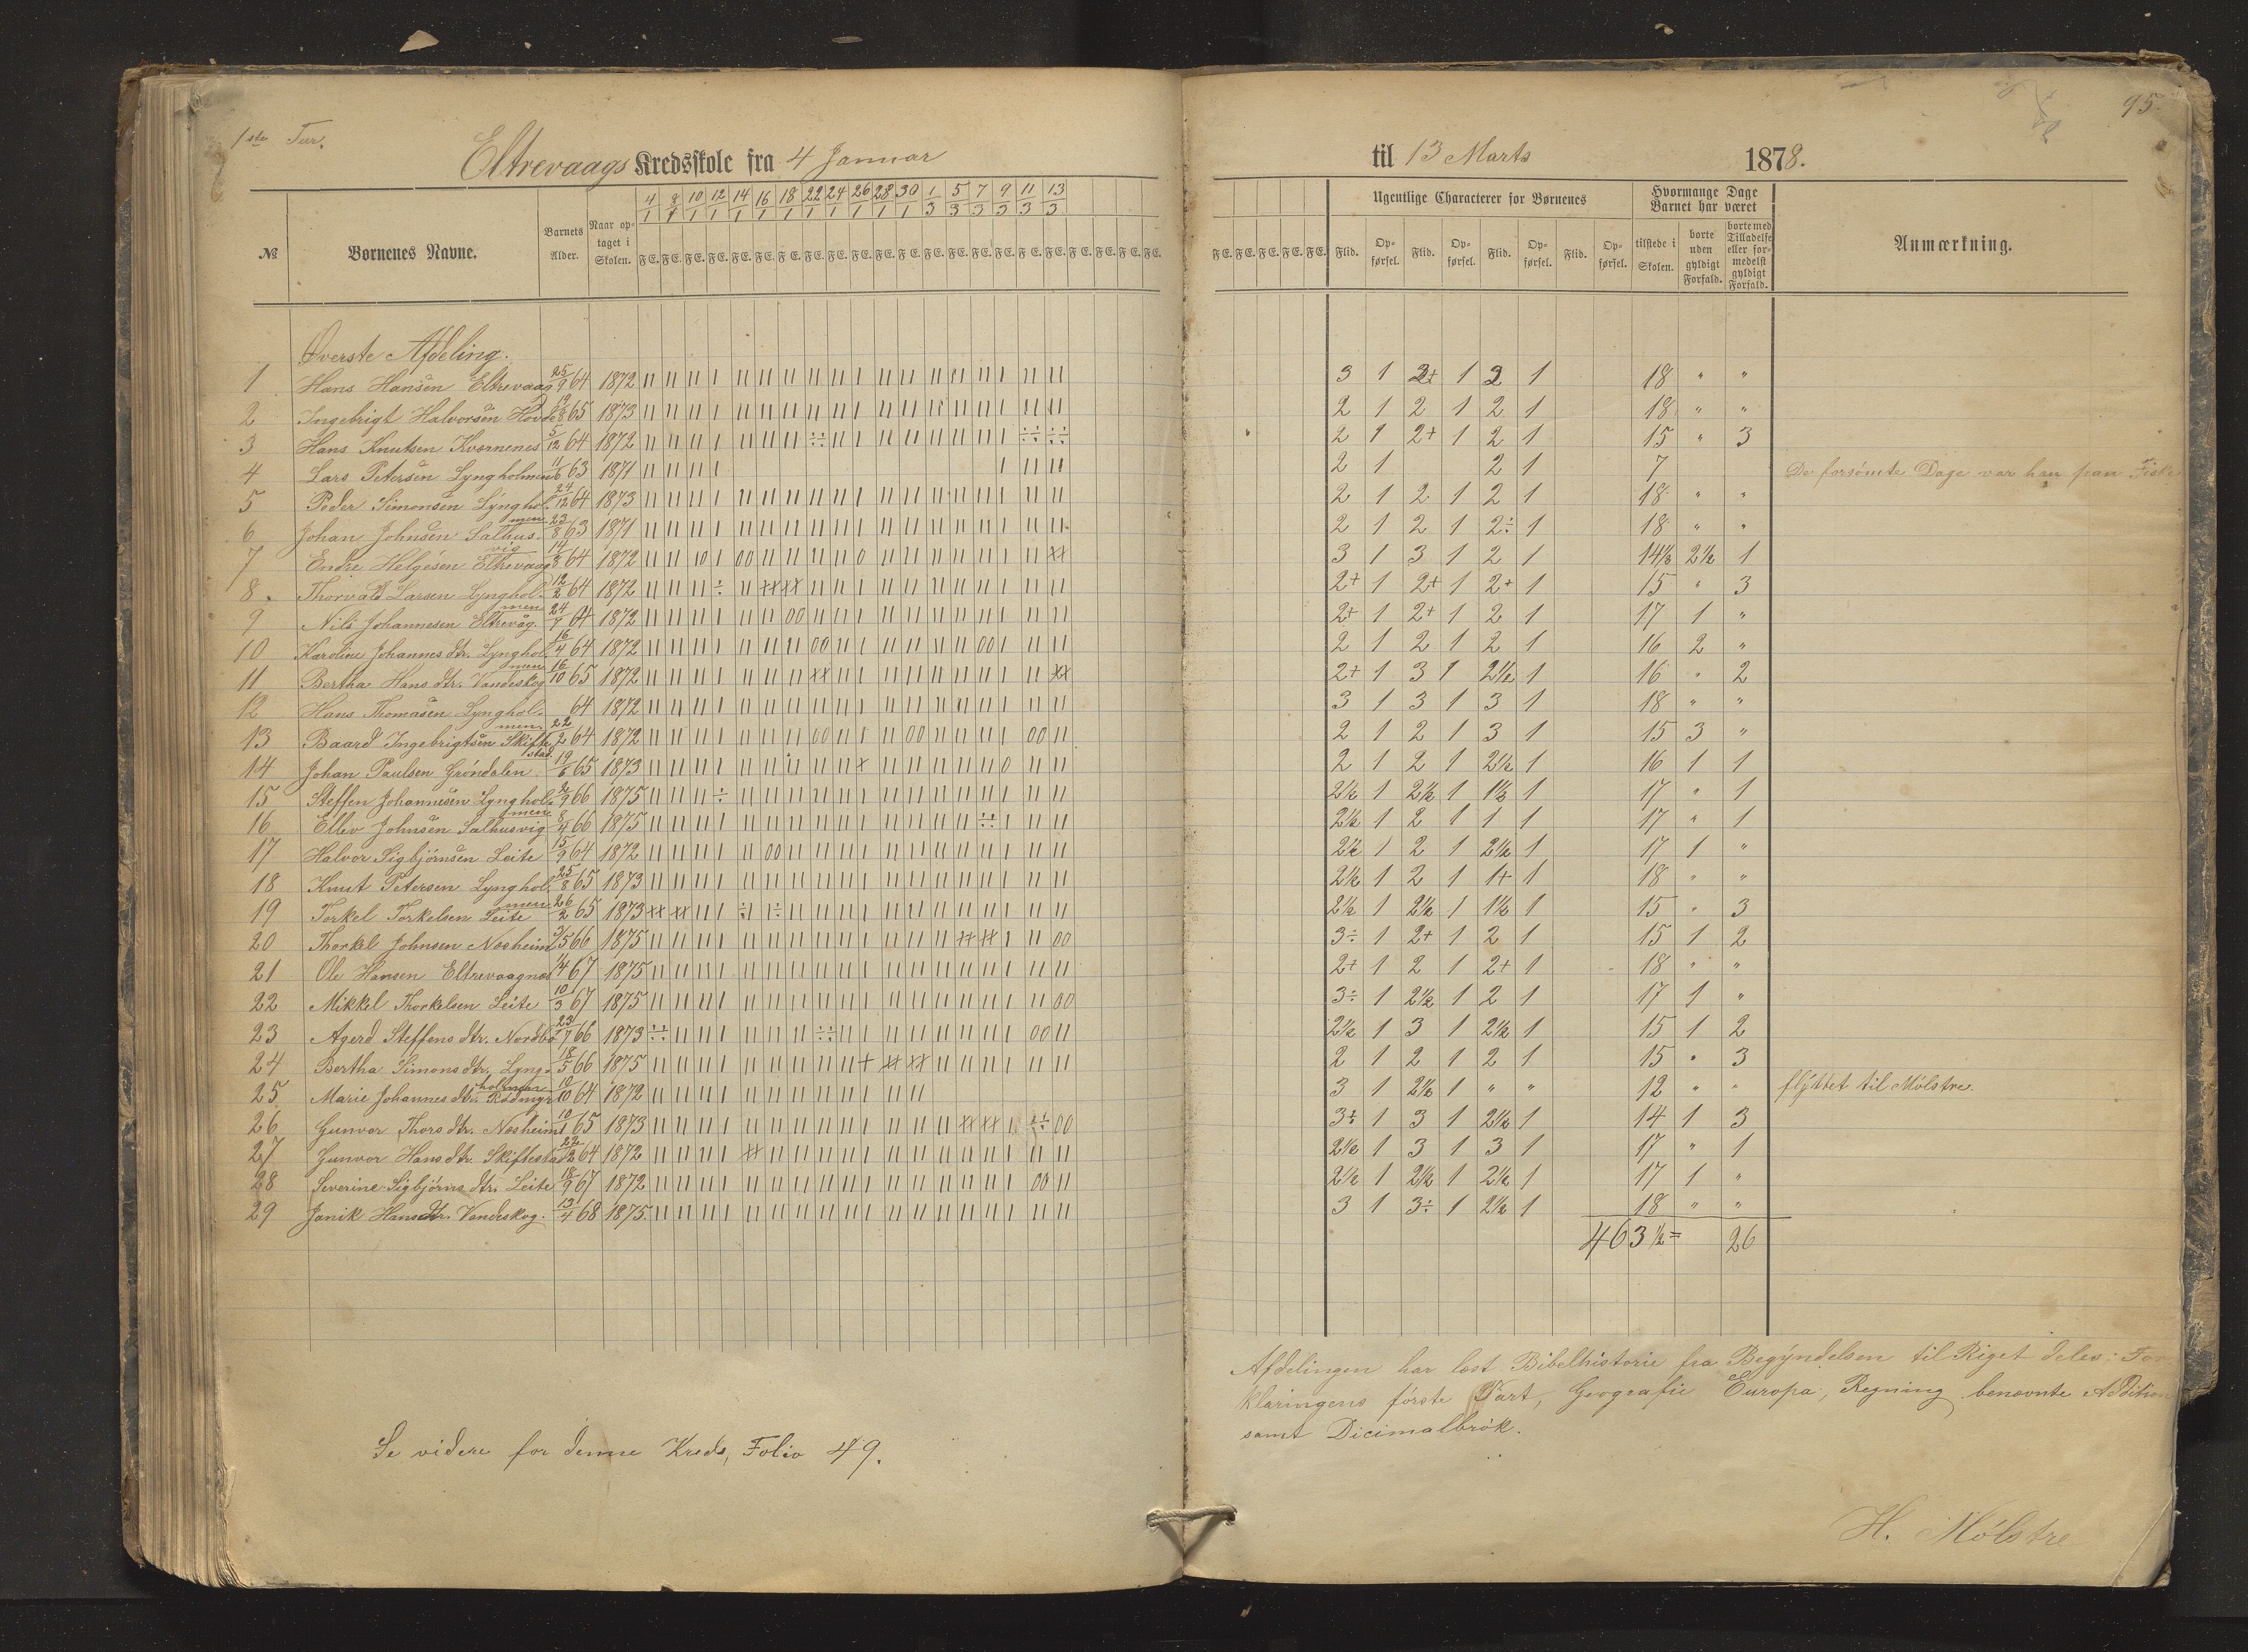 1ste Tur.
Eltrevaags Kredsskole fra 4 Januar
til 13 Marts 1878.
95.
№ Børnenes Navne. Barnets Alder. Naar optaget i Skolen. 4/1 8/1 10/1 12/1 14/1 16/1 18/1 22/1 24/1 26/1 28/1 30/1 1/3 5/3 7/3 9/3 11/3 13/3
F E. F E. F E. F E. F E. F E. F E. F E. F E. F E. F E. F E. F E. F E. F E. F E. F E. F E. F E. F E. F E. F E.
F E. F E. F E. F E. F E.
Ugentlige Characterer for Børnenes
Flid. Opførsel. Flid. Opførsel. Flid. Opførsel. Flid. Opførsel.
Hvormange Dage Barnet har været
tilstede i Skolen. borte uden gyldigt Forfald. borte med Tilladelse eller formedelst gyldigt Forfald.
Anmærkning.
Øverste Afdeling.
1 Hans Hansen Eltrevaag 25/9 64 1872 3 1 2+ 1 2 1 18 " "
2 Ingebrigt Halvorsen Hovde 65 1873 2 1 2 1 2 1 18 " "
3 Hans Knutsen Kvernenes 5/12 64 1872 2 1 2+ 1 2 1 15 " 3
4 Lars Petersen Lyngholmen 63 1871 2 1 2 1 7 De forsömte Dage var han paa Fiske
5 Peder Simonsen Lyngholmen 24/12 64 1873 2 1 2 1 2 1 18 " "
6 Johan Johnsen Salhusvig 23/8 63 1871 2 1 2 1 2÷ 1 18 " "
7 Endre Helgesen Eltrevaag 14/8 64 1872 3 1 3 1 2 1 14½ 2½ 1
8 Thorvald Larsen Lyngholmen 12/2 64 1872 2+ 1 2+ 1 2+ 1 15 " 3
9 Nils Johannesen Eltrevåg 24/7 64 1872 2+ 1 2+ 1 2 1 17 1 "
10 Karoline Johannesdtr. Lyngholmen 16/4 64 1872 2 1 2 1 2 1 16 2 "
11 Bertha Hansdtr. Vandeskog 16/10 65 1872 2+ 1 3 1 2½ 1 16 " 2
12 Hans Thomasen Lyngholmen 64 1872 3 1 3 1 3 1 18 " "
13 Baard Ingebrigtsen Skiftestad 22/2 64 1872 2 1 2 1 3 1 15 3 "
14 Johan Paulsen Gröndalen 19/6 65 1873 2 1 2 1 2½ 1 16 1 1
15 Steffen Johannesen Lyngholmen 2/9 66 1875 2½ 1 2½ 1 1½ 1 17 " 1
16 Ellev Johnsen Salhusvig 8/4 66 1875 2½ 1 2 1 1 1 17 " 1
17 Halvor Sigbjörnsen Leite 15/9 64 1872 2½ 1 2 1 2½ 1 17 1 "
18 Knut Petersen Lyngholmen 25/8 65 1873 2½ 1 2 1 1+ 1 18 " "
19 Torkel Torkelsen Leite 26/2 65 1873 2½ 1 2½ 1 1½ 1 15 " 3
20 Thorkel Johnsen Nosheim 3/5 66 1875 3÷ 1 2+ 1 2 1 15 1 2
21 Ole Hansen Eltrevaagnes 67 1875 2+ 1 2 1 2+ 1 18 " "
22 Mikkel Thorkelsen Leite 10/3 67 1875 3÷ 1 2½ 1 2 1 17 1 "
23 Agerd Steffensdtr. Nordbö 23/7 66 1873 2½ 1 3 1 2½ 1 15 1 2
24 Bertha Simonsdtr. Lyngholmen 18/5 66 1875 2 1 2 1 2 1 15 " 3
25 Marie Johannesdtr. Rödmyr 10/10 64 1872 3 1 2½ 1 " " 12 " " flyttet til Mölstre.
26 Gunvor Thorsdtr. Nosheim 10/1 65 1873 3÷ 1 3 1 2½ 1 14 1 3
27 Gunvor Hansdtr. Skiftestad 22/2 64 1872 2½ 1 3 1 3 1 17 " 1
28 Severine Sigbjörnsdtr. Leite 18/9 67 1872 2½ 1 2½ 1 2½ 1 17 1 "
29 Janik Hansdtr. Vandeskog. 13/4 68 1875. 3 1 3÷ 1 2½ 1 18 " "
463½ = 26
Se videre for denne Kreds, Folio 49.
Afdelingen har læst Bibelhistorie fra Begyndelsen til Riget deles; For
klaringens förste Part, Geografie Europa, Regning benævnte Addition
samt Dicimalbrök.
H. Mölstre